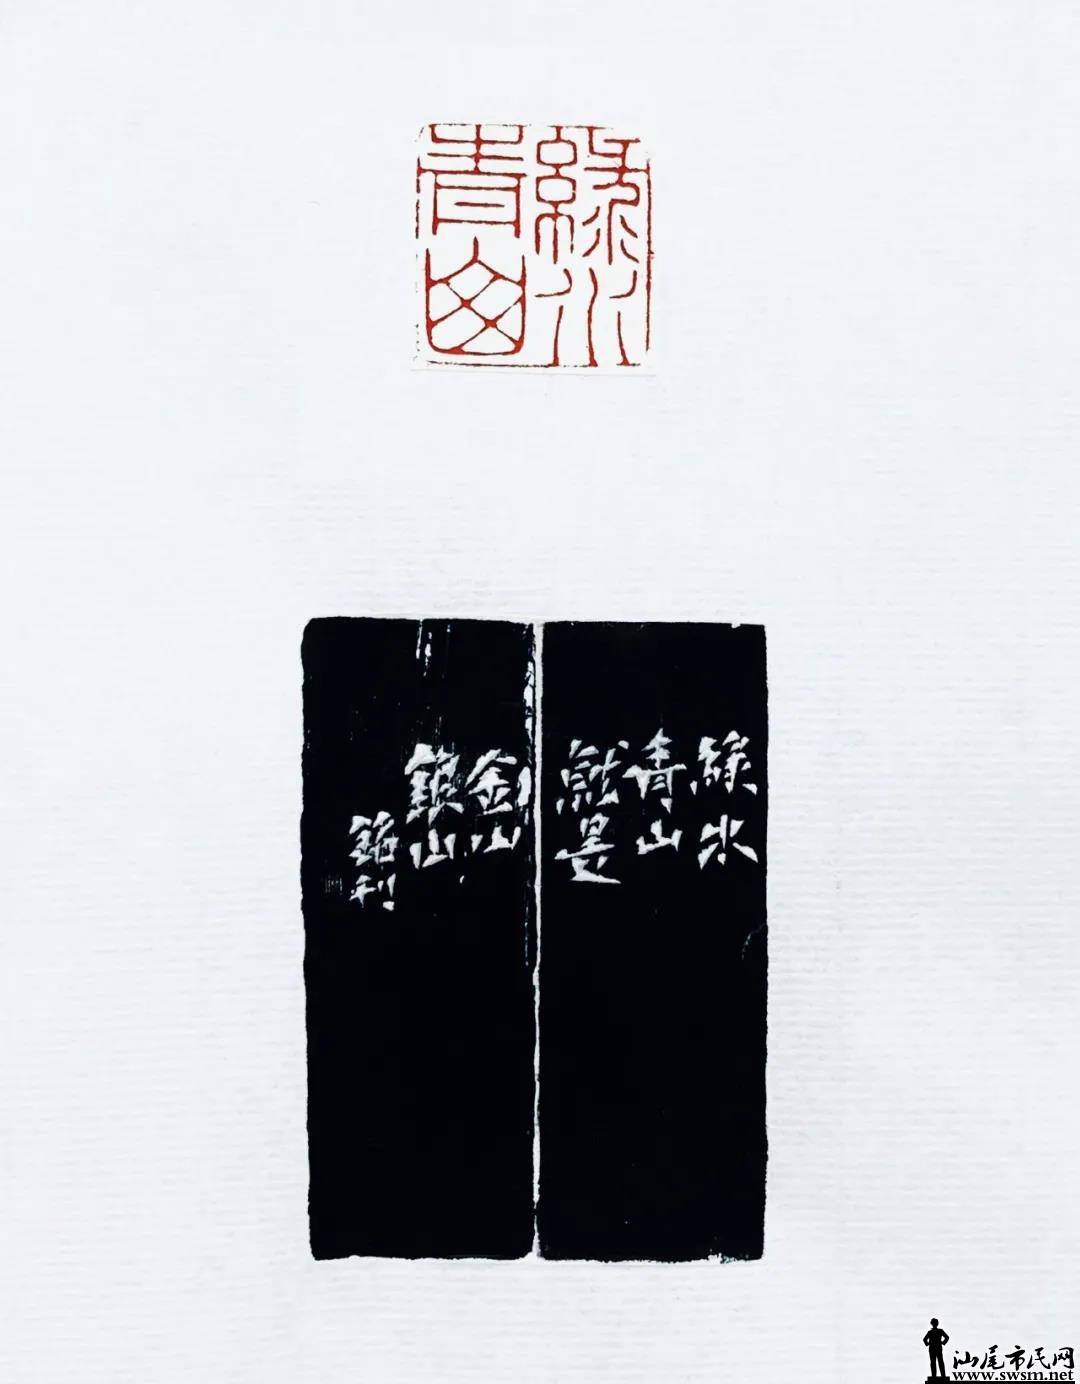 綠水
青山
綠水
青山
就是
金山
銀山
銘利
汕尾市民网
www.swsm.net